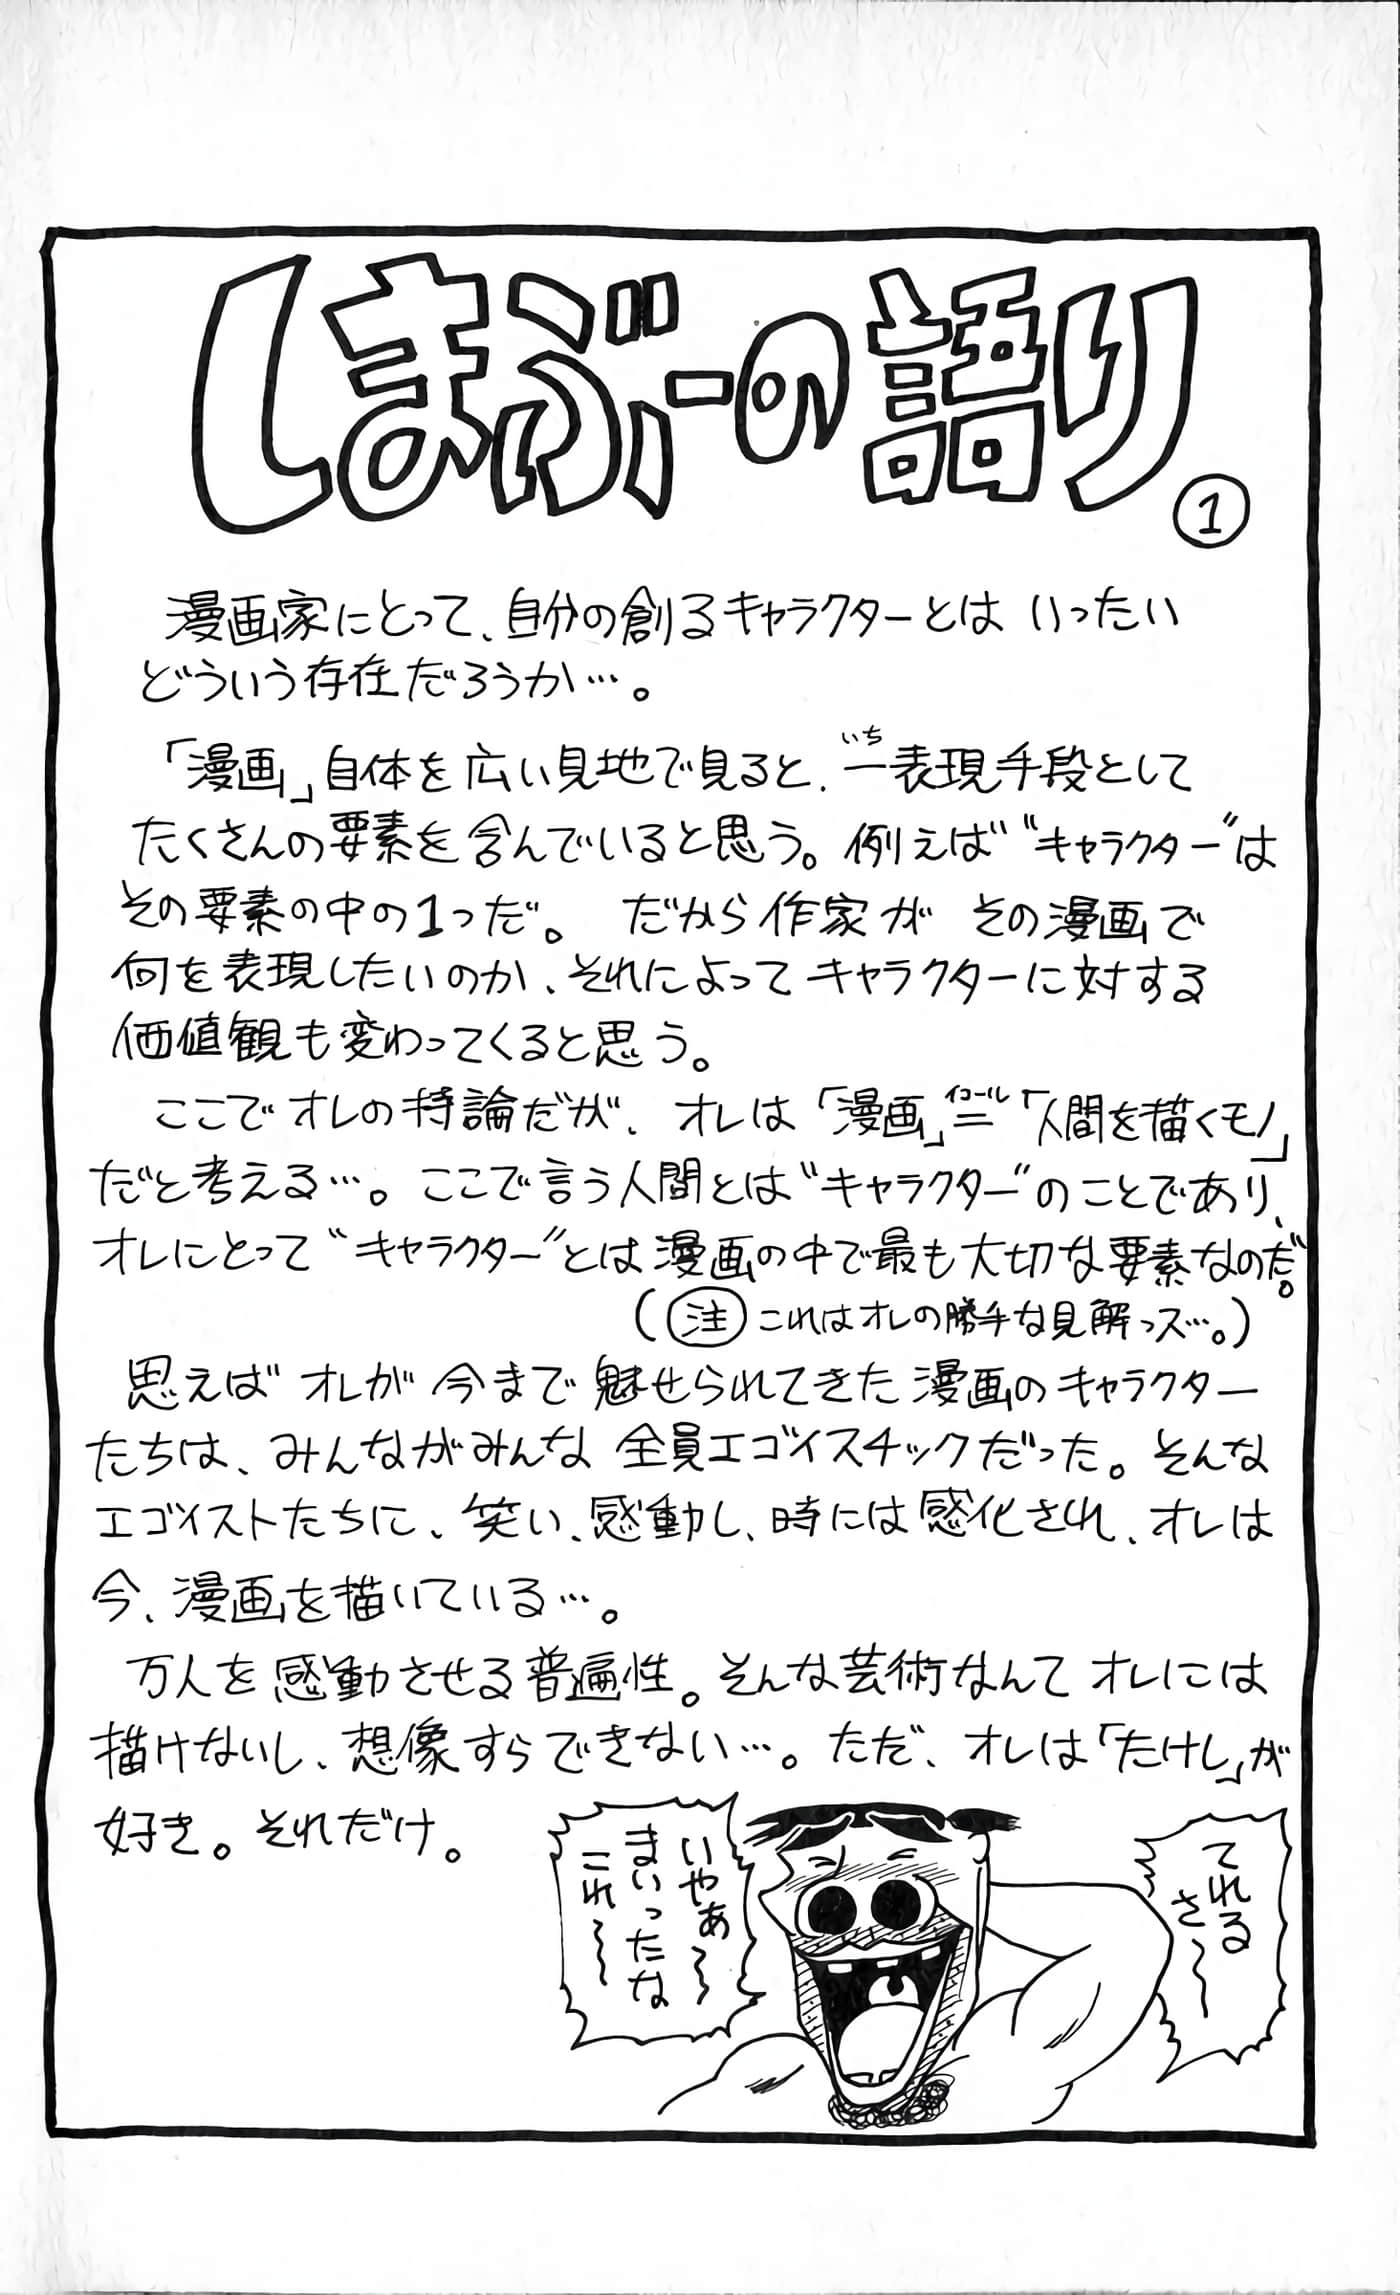 しまぶーの語り
①
漫画家にとって、自分の創るキャラクターとは いったい
どういう存在だろうか…。
「漫画」自体を広い見地で見ると、一表現手段として
いち
たくさんの要素を含んでいると思う。例えば“キャラクター”は
その要素の中の1つだ。 だから作家が その漫画で
何を表現したいのか、それによってキャラクターに対する
価値観も変わってくると思う。
ここでオレの持論だが、オレは「漫画」=「人間を描くモノ」
イコール
だと考える…。ここで言う人間とは“キャラクター”のことであり、
オレにとって“キャラクター”とは漫画の中で最も大切な要素なのだ。
(注 これはオレの勝手な見解っス…。)
思えば オレが 今まで魅せられてきた漫画のキャラクター
たちは、みんながみんな 全員エゴイスチックだった。そんな
エゴイストたちに、笑い、感動し、時には感化され、オレは
今、漫画を描いている…。
万人を感動させる普遍性。そんな芸術なんてオレには
描けないし、想像すらできない…。ただ、オレは「たけし」が
好き。それだけ。
てれる
さ〜〜
いやぁ〜〜
まいったな
これ〜〜